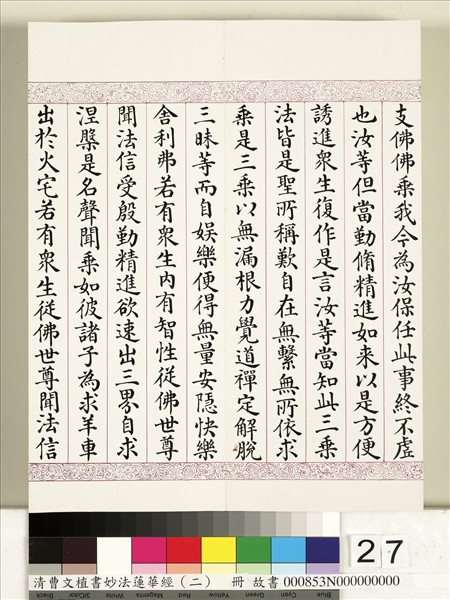 支佛佛乘我今為汝保任此事終不虛
也汝等但當勤脩精進如来以是方便
誘進衆生復作是言汝等當知此三乘
法皆是聖所稱歎自在無繫無所依求
乘是三乘以無漏根力覺道禪定解脫
三昧等而自娛樂便得無量安隱快樂
舍利弗若有衆生內有智性從佛世尊
聞法信受殷勤精進欲速出三界自求
涅槃是名聲聞乘如彼諸子為求羊車
出於火宅若有衆生從佛世尊聞法信
27
清曹文植書妙法蓮華經（二） 冊 故書 000853N000000000
Black 3/Color White Magenta Red Yellow Green Cyan Blue